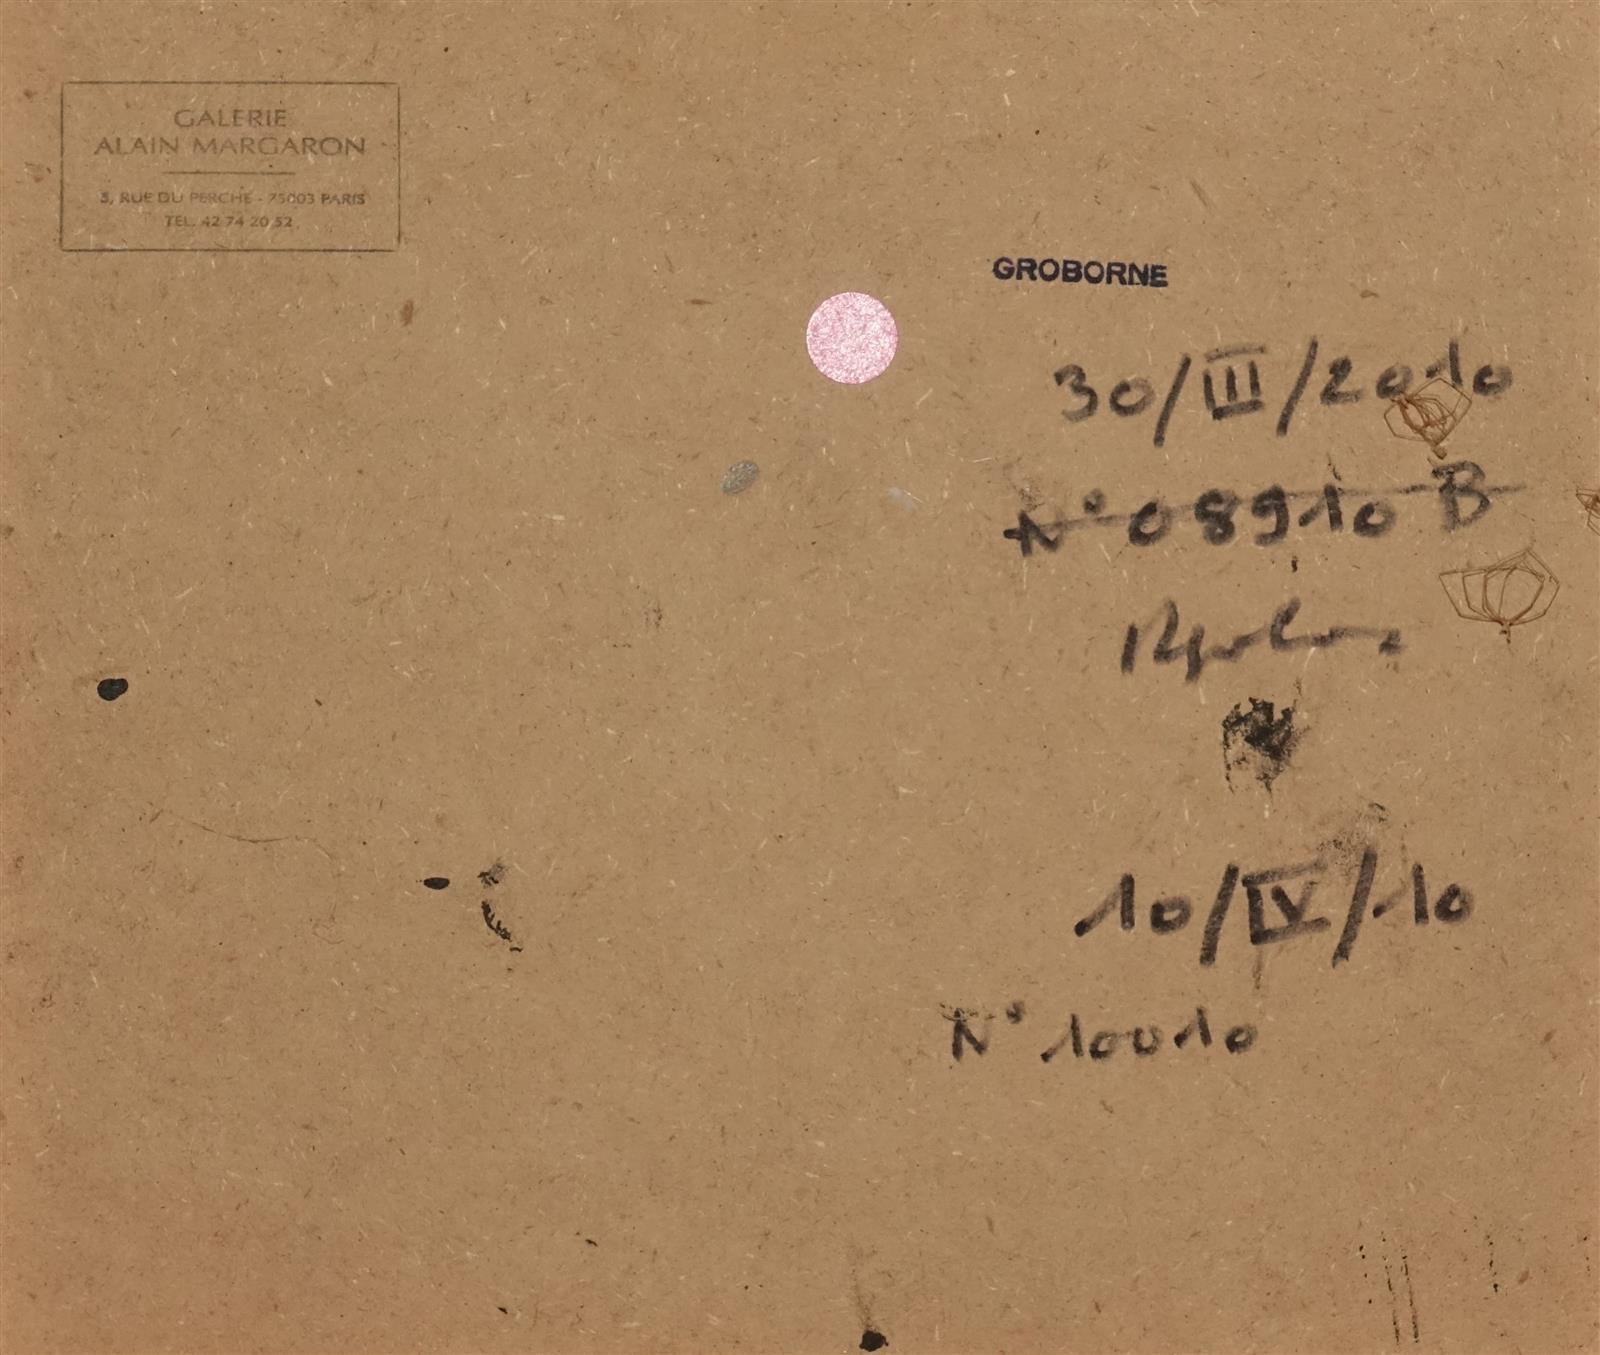 GALERIE
ALAIN MARGARON
5, RUE DU PERCHE - 75003 PARIS
TEL. 42 74 20 52
GROBORNE
30/III/2010
N° 08910 B
10/IV/10
N° 10010